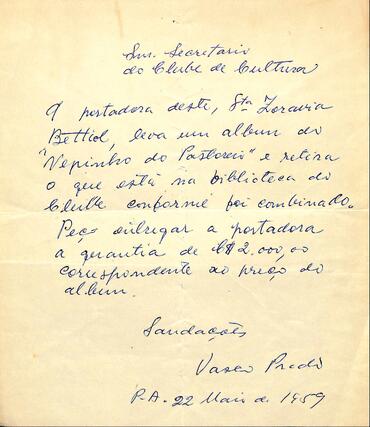 Snr. Secretario
do Clube de Cultura
A portadora deste, Sta Zoravia
Bettiol, leva um album do
"Negrinho do Pastoreio" e retira
o que está na biblioteca do
Clube conforme foi combinado.
Peço entregar a portadora
a garantia de C$ 2.000,00
correspondente ao preço do
album.
Saudações
Vasco Prado
P.A. 22 Maio de 1959